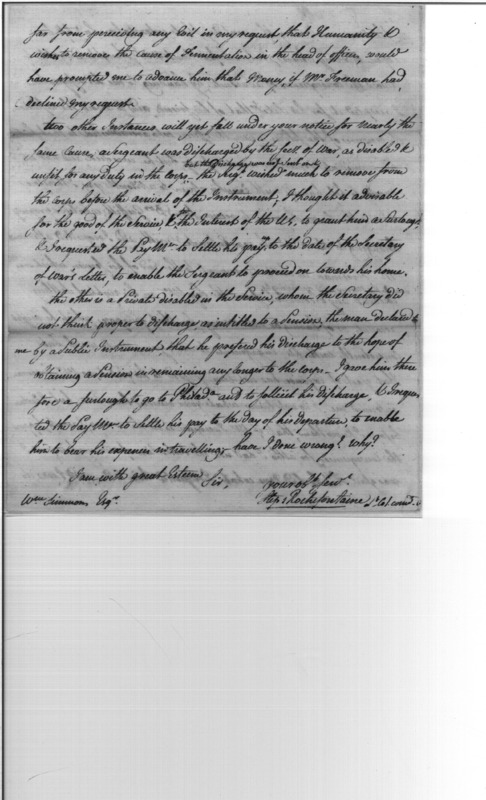 far from perceiving any Evil in my request that Humanity &
wishes to remove the cause of Fermentation in the head of officer, would
have prompted me to advance him that Money if Mr Freeman had
declined my request.
two other Instances will yet fall under your notice for nearly the
same cause, a Sergeant was discharged by the Secy of War, as disabled &
but the Discharge was not sent only
unfit for any Duty in the corps. the Sergt wished much to remove from
the corps before the arrival of the Instrument, I thought it advisable
for the good of the Service, & the Interest of the U.S, to grant him a furlough,
& I requested the Pay Mr to Settle his pay to the Date of the Secretary
of War's letter, to enable the Sergeant to proceed on towards his home.
the other is a Private disabled in the Service, whom the Secretary did
not think proper to discharge as intitled to a Pension, the man declared to
me by a Public Instrument, that he prefered his discharge to the hope of
obtaining a Pension in remaining any longer to the corps - I gave him there
fore a furlough to go to Philada and to sollicit his discharge, & I reques
ted the Pay Mr to Settle his pay to the day of his departure, to enable
him to bear his expences in travelling, have I done wrong? Why?
I am with great Esteem
Sir,
your obt Servt
Wm Simmons Esqr. Stepn Rochefontaine Lt Col. comdt